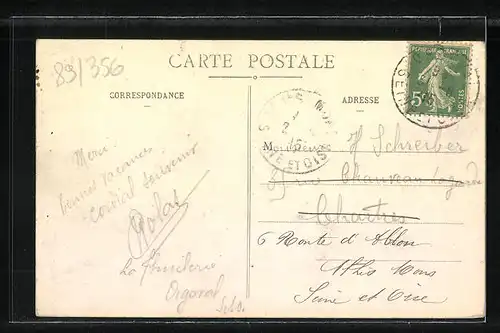 83/356
CARTE POSTALE
CORRESPONDANCE
ADRESSE
REPUBLIQUE FRANÇAISE
5
POSTES
SEINE ET OISE
Merci
bonnes vacances
cordial souvenir
Orgeval
S&O.
Monsieur H Schreiber
rue Chauveau Lagarde
Chartres
6 Route d'Ablon
Athis Mons
Seine et Oise